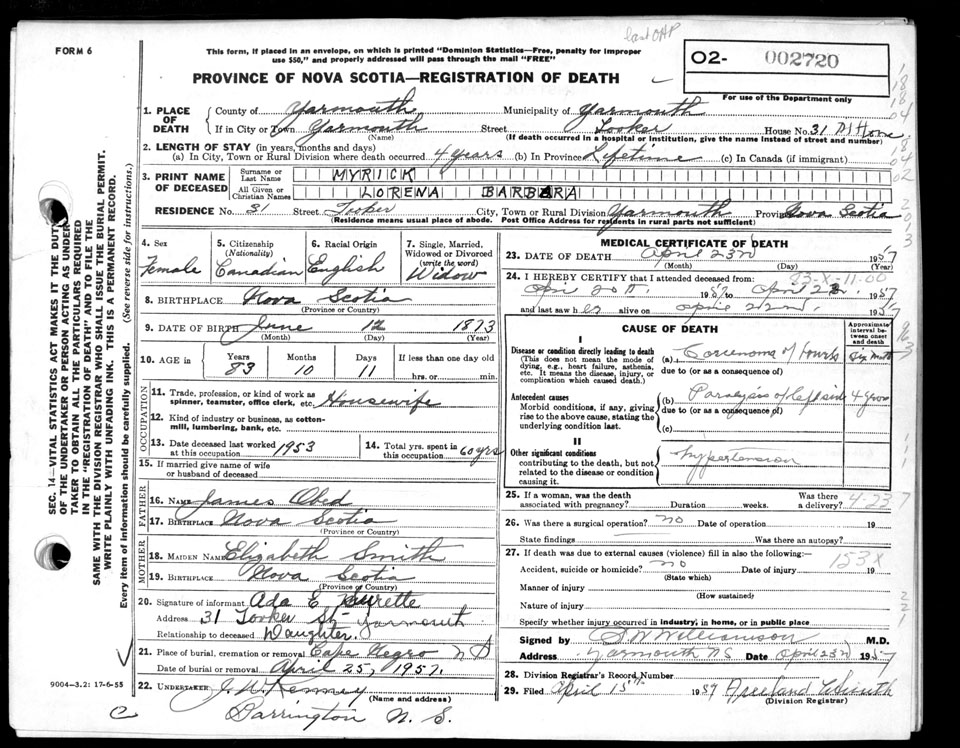 FORM 6
last OAP
This form, if placed in an envelope, on which is printed "Dominion Statistics—Free, penalty for improper
use $50," and properly addressed will pass through the mail "FREE"
PROVINCE OF NOVA SCOTIA—REGISTRATION OF DEATH
O2- 002720
For use of the Department only
1. PLACE OF DEATH
County of Yarmouth Municipality of Yarmouth
If in City or Town Yarmouth Street Tooker House No. 31
(Name) (If death occurred in a hospital or institution, give the name instead of street and number)
2. LENGTH OF STAY (in years, months and days)
(a) In City, Town or Rural Division where death occurred 4 years (b) In Province Lifetime (c) In Canada (if immigrant)
3. PRINT NAME OF DECEASED
Surname or Last Name MYRICK
All Given or Christian Names LORENA BARBARA
RESIDENCE No. 31 Street Tooker City, Town or Rural Division Yarmouth Province Nova Scotia
(Residence means usual place of abode. Post Office Address for residents in rural parts not sufficient)
4. Sex Female
5. Citizenship (Nationality) Canadian
6. Racial Origin English
7. Single, Married, Widowed or Divorced (write the word) Widow
8. BIRTHPLACE Nova Scotia
(Province or Country)
9. DATE OF BIRTH June 12 1873
(Month) (Day) (Year)
10. AGE in Years 83 Months 10 Days 11 If less than one day old
hrs. or min.
OCCUPATION
11. Trade, profession, or kind of work as spinner, teamster, office clerk, etc. Housewife
12. Kind of industry or business, as cotton-mill, lumbering, bank, etc.
13. Date deceased last worked at this occupation 1953
14. Total yrs. spent in this occupation 60 yrs
15. If married give name of wife or husband of deceased
FATHER
16. NAME James Obed
17. BIRTHPLACE Nova Scotia
(Province or Country)
MOTHER
18. MAIDEN NAME Elizabeth Smith
19. BIRTHPLACE Nova Scotia
(Province or Country)
20. Signature of informant Ada E Surette
Address 31 Tooker St Yarmouth
Relationship to deceased Daughter.
21. Place of burial, cremation or removal Cape Negro N S
Date of burial or removal April 25, 1957.
22. UNDERTAKER J. W. Kenney
(Name and address)
Barrington N. S.
9004-3.2: 17-6-55
C
MEDICAL CERTIFICATE OF DEATH
23. DATE OF DEATH April 23rd 1957
(Month) (Day) (Year)
23-X-11-00
24. I HEREBY CERTIFY that I attended deceased from:
April 20th 1957 to April 22 1957
and last saw her alive on April 22nd 1957
CAUSE OF DEATH
Approximate interval between onset and death
I
Disease or condition directly leading to death (a) Carcinoma of Six Mnth
(This does not mean the mode of dying, e.g., heart failure, asthenia, etc. It means the disease, injury, or complication which caused death.)
due to (or as a consequence of)
Antecedent causes (b) Paralysis of left side 4 years
Morbid conditions, if any, giving rise to the above cause, stating the underlying condition last.
due to (or as a consequence of)
(c)
II
Other significant conditions Hypertension
contributing to the death, but not related to the disease or condition causing it.
25. If a woman, was the death associated with pregnancy? Duration weeks. Was there a delivery?
4-23-7
26. Was there a surgical operation? no Date of operation 19
State findings Was there an autopsy?
27. If death was due to external causes (violence) fill in also the following:—
153X
Accident, suicide or homicide? no Date of injury 19
(State which)
Manner of injury
(How sustained)
Nature of injury
Specify whether injury occurred in industry, in home, or in public place
Signed by S W Williamson M.D.
Address Yarmouth NS Date April 23rd 1957
28. Division Registrar's Record Number
29. Filed April 15th 1957 Freeland Smith
(Division Registrar)
SEC. 14—VITAL STATISTICS ACT MAKES IT THE DUTY
OF THE UNDERTAKER OR PERSON ACTING AS UNDER-
TAKER TO OBTAIN ALL THE PARTICULARS REQUIRED
IN THE "REGISTRATION OF DEATH" AND TO FILE THE
SAME WITH THE DIVISION REGISTRAR WHO SHALL ISSUE THE BURIAL PERMIT.
WRITE PLAINLY WITH UNFADING INK. THIS IS A PERMANENT RECORD.
Every item of information should be carefully supplied. (See reverse side for instructions.)